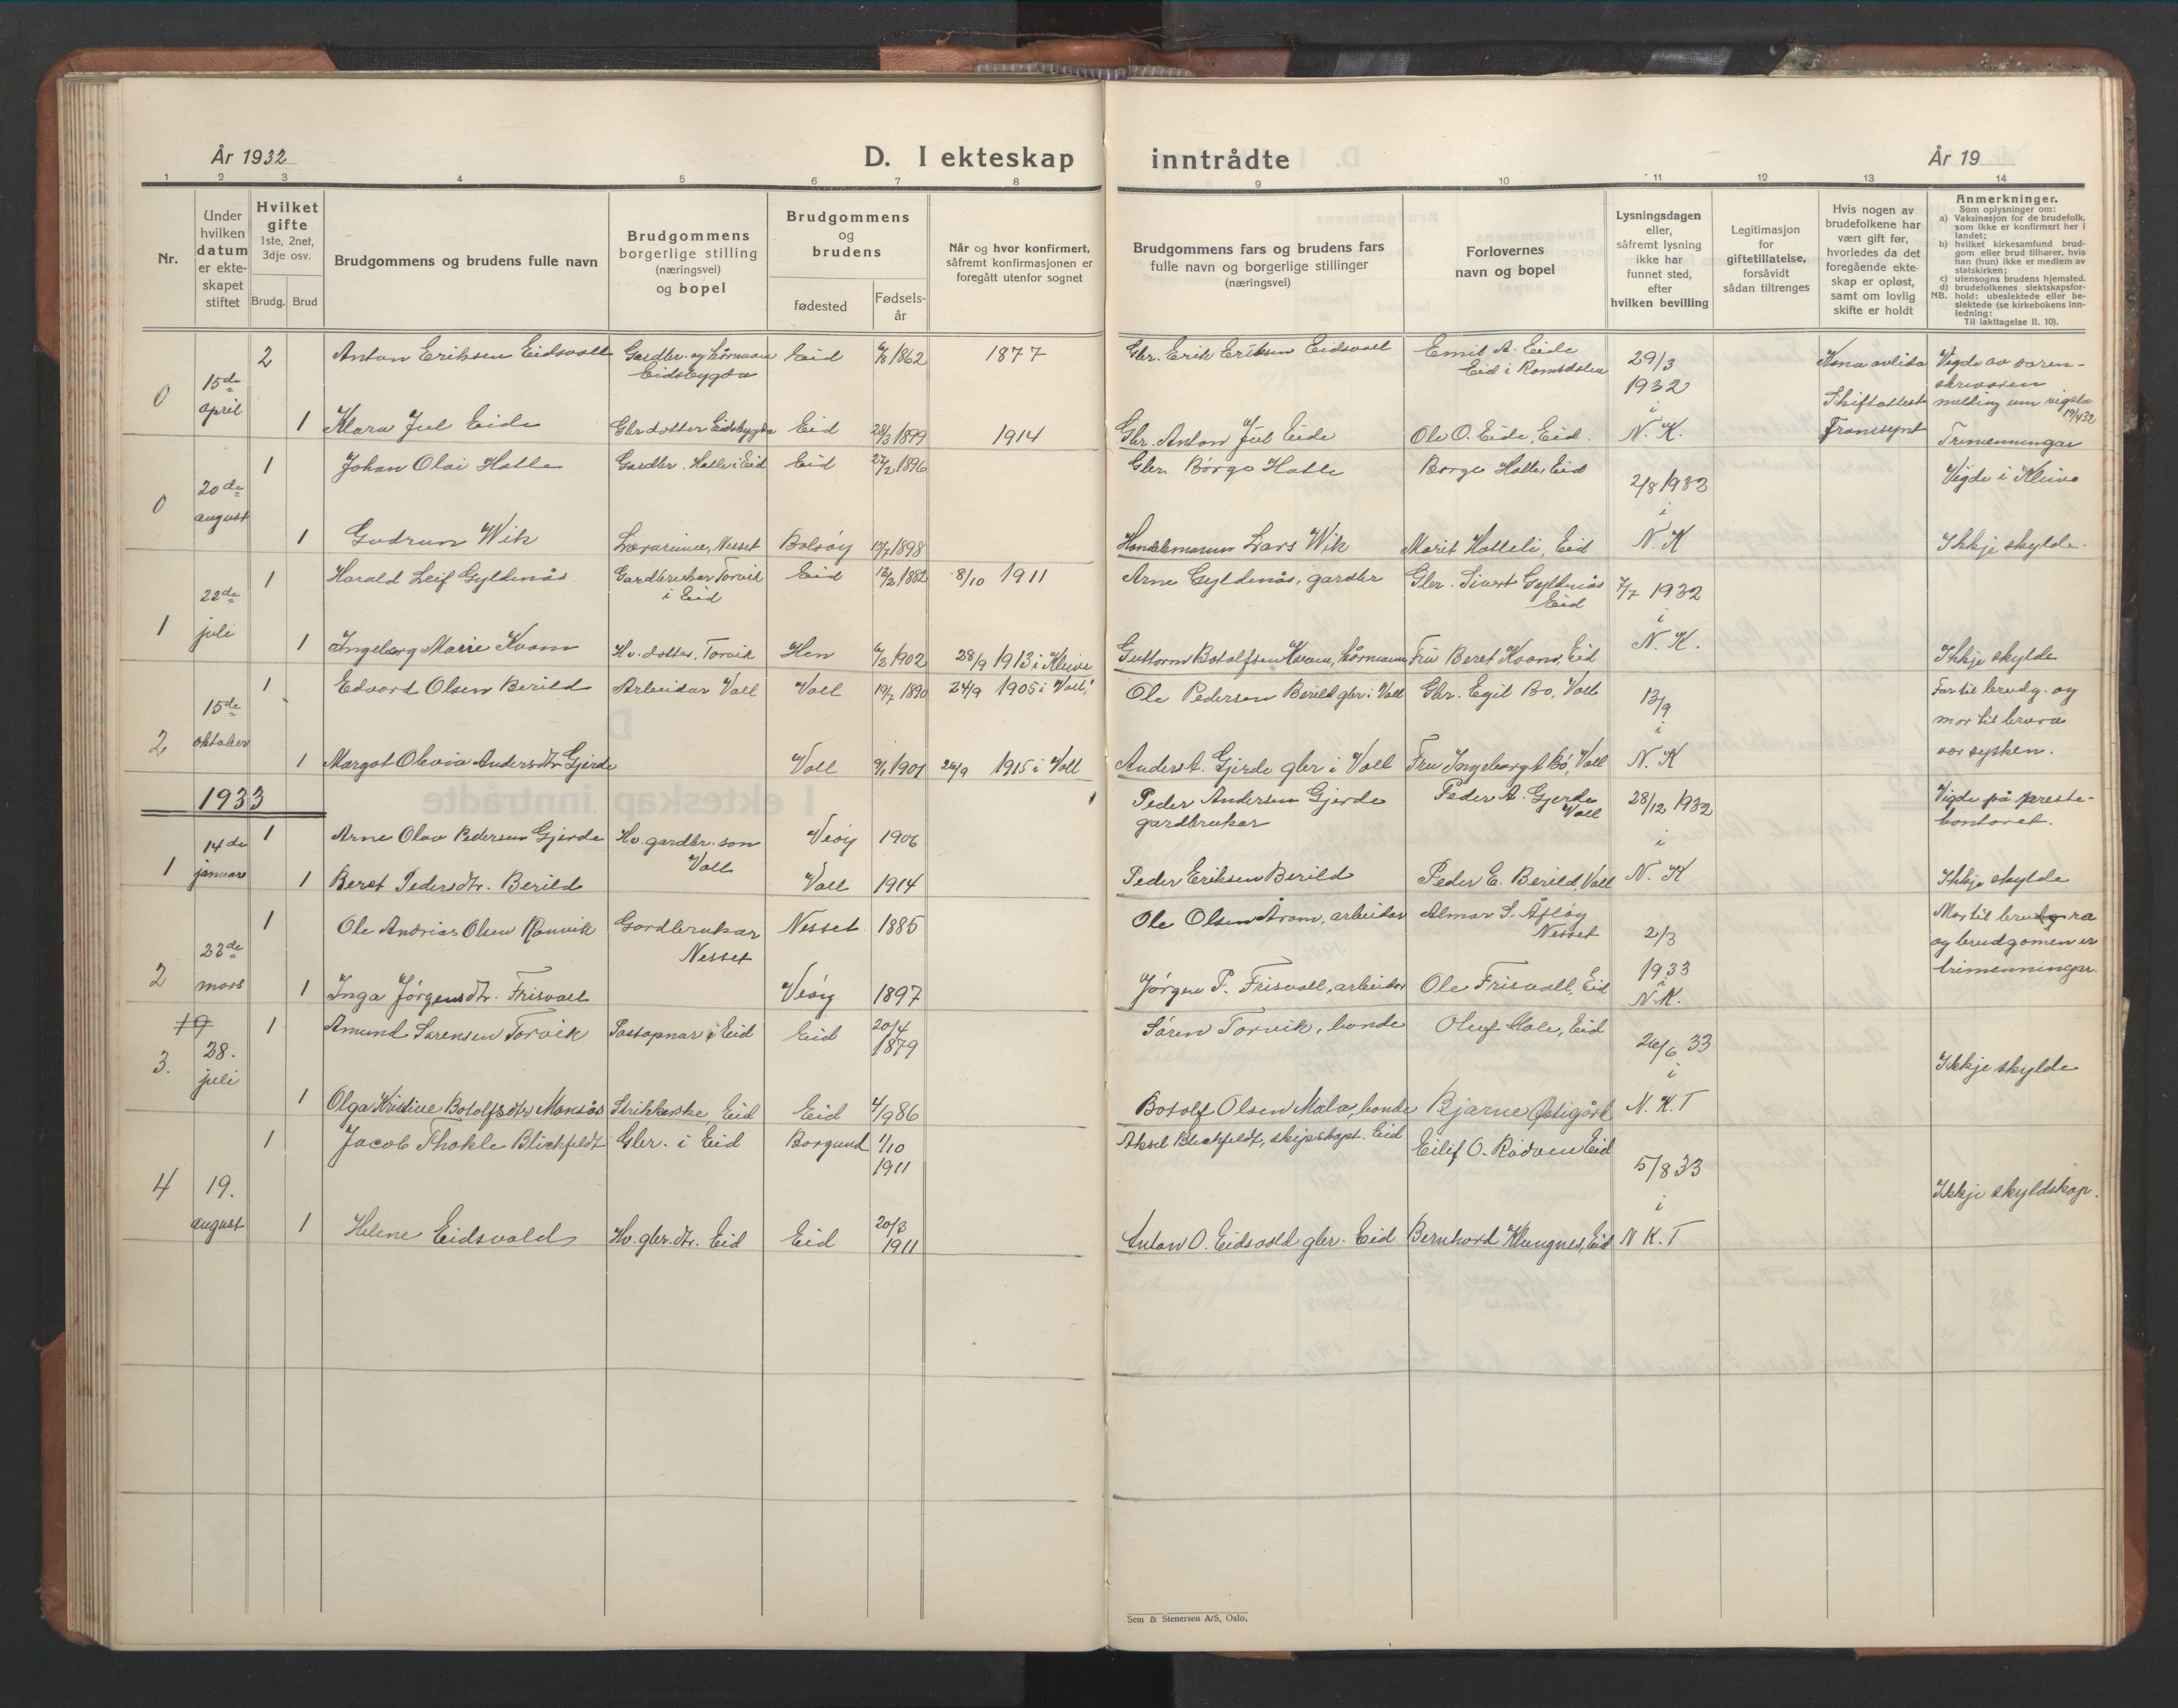 År 1932
D. I ekteskap
inntrådte
År 19
1 2 3 4 5 6 7 8 9 10 11 12 13 14
Nr.
Under hvilken datum er ekte-skapet stiftet
Hvilket gifte
1ste, 2net, 3dje osv.
Brudg. Brud
Brudgommens og brudens fulle navn
Brudgommens borgerlige stilling (næringsvei) og bopel
Brudgommens og brudens
fødested
Fødsels-år
Når og hvor konfirmert, såfremt konfirmasjonen er foregått utenfor sognet
Brudgommens fars og brudens fars
fulle navn og borgerlige stillinger
(næringsvei)
Forlovernes
navn og bopel
Lysningsdagen eller, såfremt lysning ikke har funnet sted, efter hvilken bevilling
Legitimasjon for giftetillatelse, forsåvidt sådan tiltrenges
Hvis nogen av brudefolkene har vært gift før, hvorledes da det foregående ekte-skap er opløst, samt om lovlig skifte er holdt
Anmerkninger.
Som oplysninger om:
a) Vaksinasjon for de brudefolk, som ikke er konfirmert her i landet;
b) hvilket kirkesamfund brud-gom eller brud tilhører, hvis han (hun) ikke er medlem av statskirken;
c) utensogns brudens hjemsted.
d) brudefolkenes slektskapsfor-hold: ubeslektede eller be-slektede (se kirkebokens inn-ledning:
NB.
Til iakttagelse II. 10).
0 15de april 2 Anton Eriksen Eidsvoll Gardbr. og Eidsbygda Eid 1862 1877 Gbr. Erik Eriksen Eidsvoll Emil A. Eide Eid i Romsdalen 29/3 1932 i N. K. Kona avlida Skiftattest framsynt Vigde av soren-skrivaren melding um vigsla
1 Klara Jul Eide Gbr dotter Eidsbygda Eid 28/3 1899 1914 Gbr. Anton Jul Eide Ole O. Eide, Eid. Trimenningar
0 20de august 1 Johan Olai Hatle Gardbr. Hatle i Eid Eid 27/2 1896 Gbr. Børge Hatle Børge Hatle, Eid 2/8 1932 i N. K Vigde i Kleive
1 Gudrun Wik Lærarinne, Nesset Bolsøy 1898 Handelsmann Lars Wik Marit Hatteli, Eid Ikkje skylde.
1 22de juli 1 Harald Leif Gyldenås Gardbrukar Torvik i Eid Eid 12/2 1882 8/10 1911 Arne Gyldenås, gardbr Gbr. Sivert Gyldenås Eid 7/7 1932 i N. K.
1 Ingeborg Marie Kvam Hv. dotter, Torvik Hen 1902 28/9 1913 i Kleive Guttorm Botolfsen Kvam, Fru Beret Kvam, Eid Ikkje skylde
2 15de oktober 1 Edvard Olsen Berild Arbeidar Voll Voll 19/7 1890 24/9 1905 i Voll Ole Pedersen Berild gbr. i Voll Gbr. Egil Bø, Voll 13/9 i N. K Far til brudg. og mor til brura var sysken.
1 Margot Olevia Andersdtr Gjerde Voll 1901 26/9 1915 i Voll Anders A. Gjerde gbr i Voll Fru Ingeborg Bø, Voll
1933
1 14de januar 1 Arne Olav Pedersen Gjerde Hv. gardbr. son Voll Veøy 1906 Peder Andersen Gjerde gardbrukar Peder A. Gjerde Voll 28/12 1932 i N. K Vigde på preste-kontoret.
1 Beret Pedersdtr. Berild Voll 1914 Peder Eriksen Berild Peder E. Berild, Voll Ikkje skylde
2 mars 1 Ole Andrias Olsen Ranvik Gardbrukar Nesset Nesset 1885 Ole Olsen, arbeidar Almar S. Åfløy Nesset 2/3 1933 i N. K. Mor til brudgra og brudgomen er trimenningar
1 Inga Jørgensdtr. Frisvoll Veøy 1897 Jørgen P. Frisvoll, arbeidar Ole Frisvoll, Eid
3. 28. juli 1 Amund Sørensen Torvik Postopnar i Eid Eid 20/4 1879 Søren Torvik, bonde Oluf Hole, Eid 26/6 33 i N. K. T Ikkje skylde
1 Olga Kristine Botolfsdtr Månsås Strikkerske Eid Eid 4/9 86 Botolf Olsen Måla, bonde Bjarne Østigård
4 19. august 1 Jacob Thokle Blichfeldt Gbr. i Eid Borgund 1/10 1911 Aksel Blichfeldt, skipskapt. Eid Eilif O. Rødven Eid 5/8 33 i N K. T Ikkje skyldskap.
1 Helene Eidsvold Hv. gbr. dtr. Eid Eid 20/3 1911 Anton O. Eidsvold gbr. Eid Bernhard Klungnes, Eid
Sem & Stenersen A/S, Oslo.